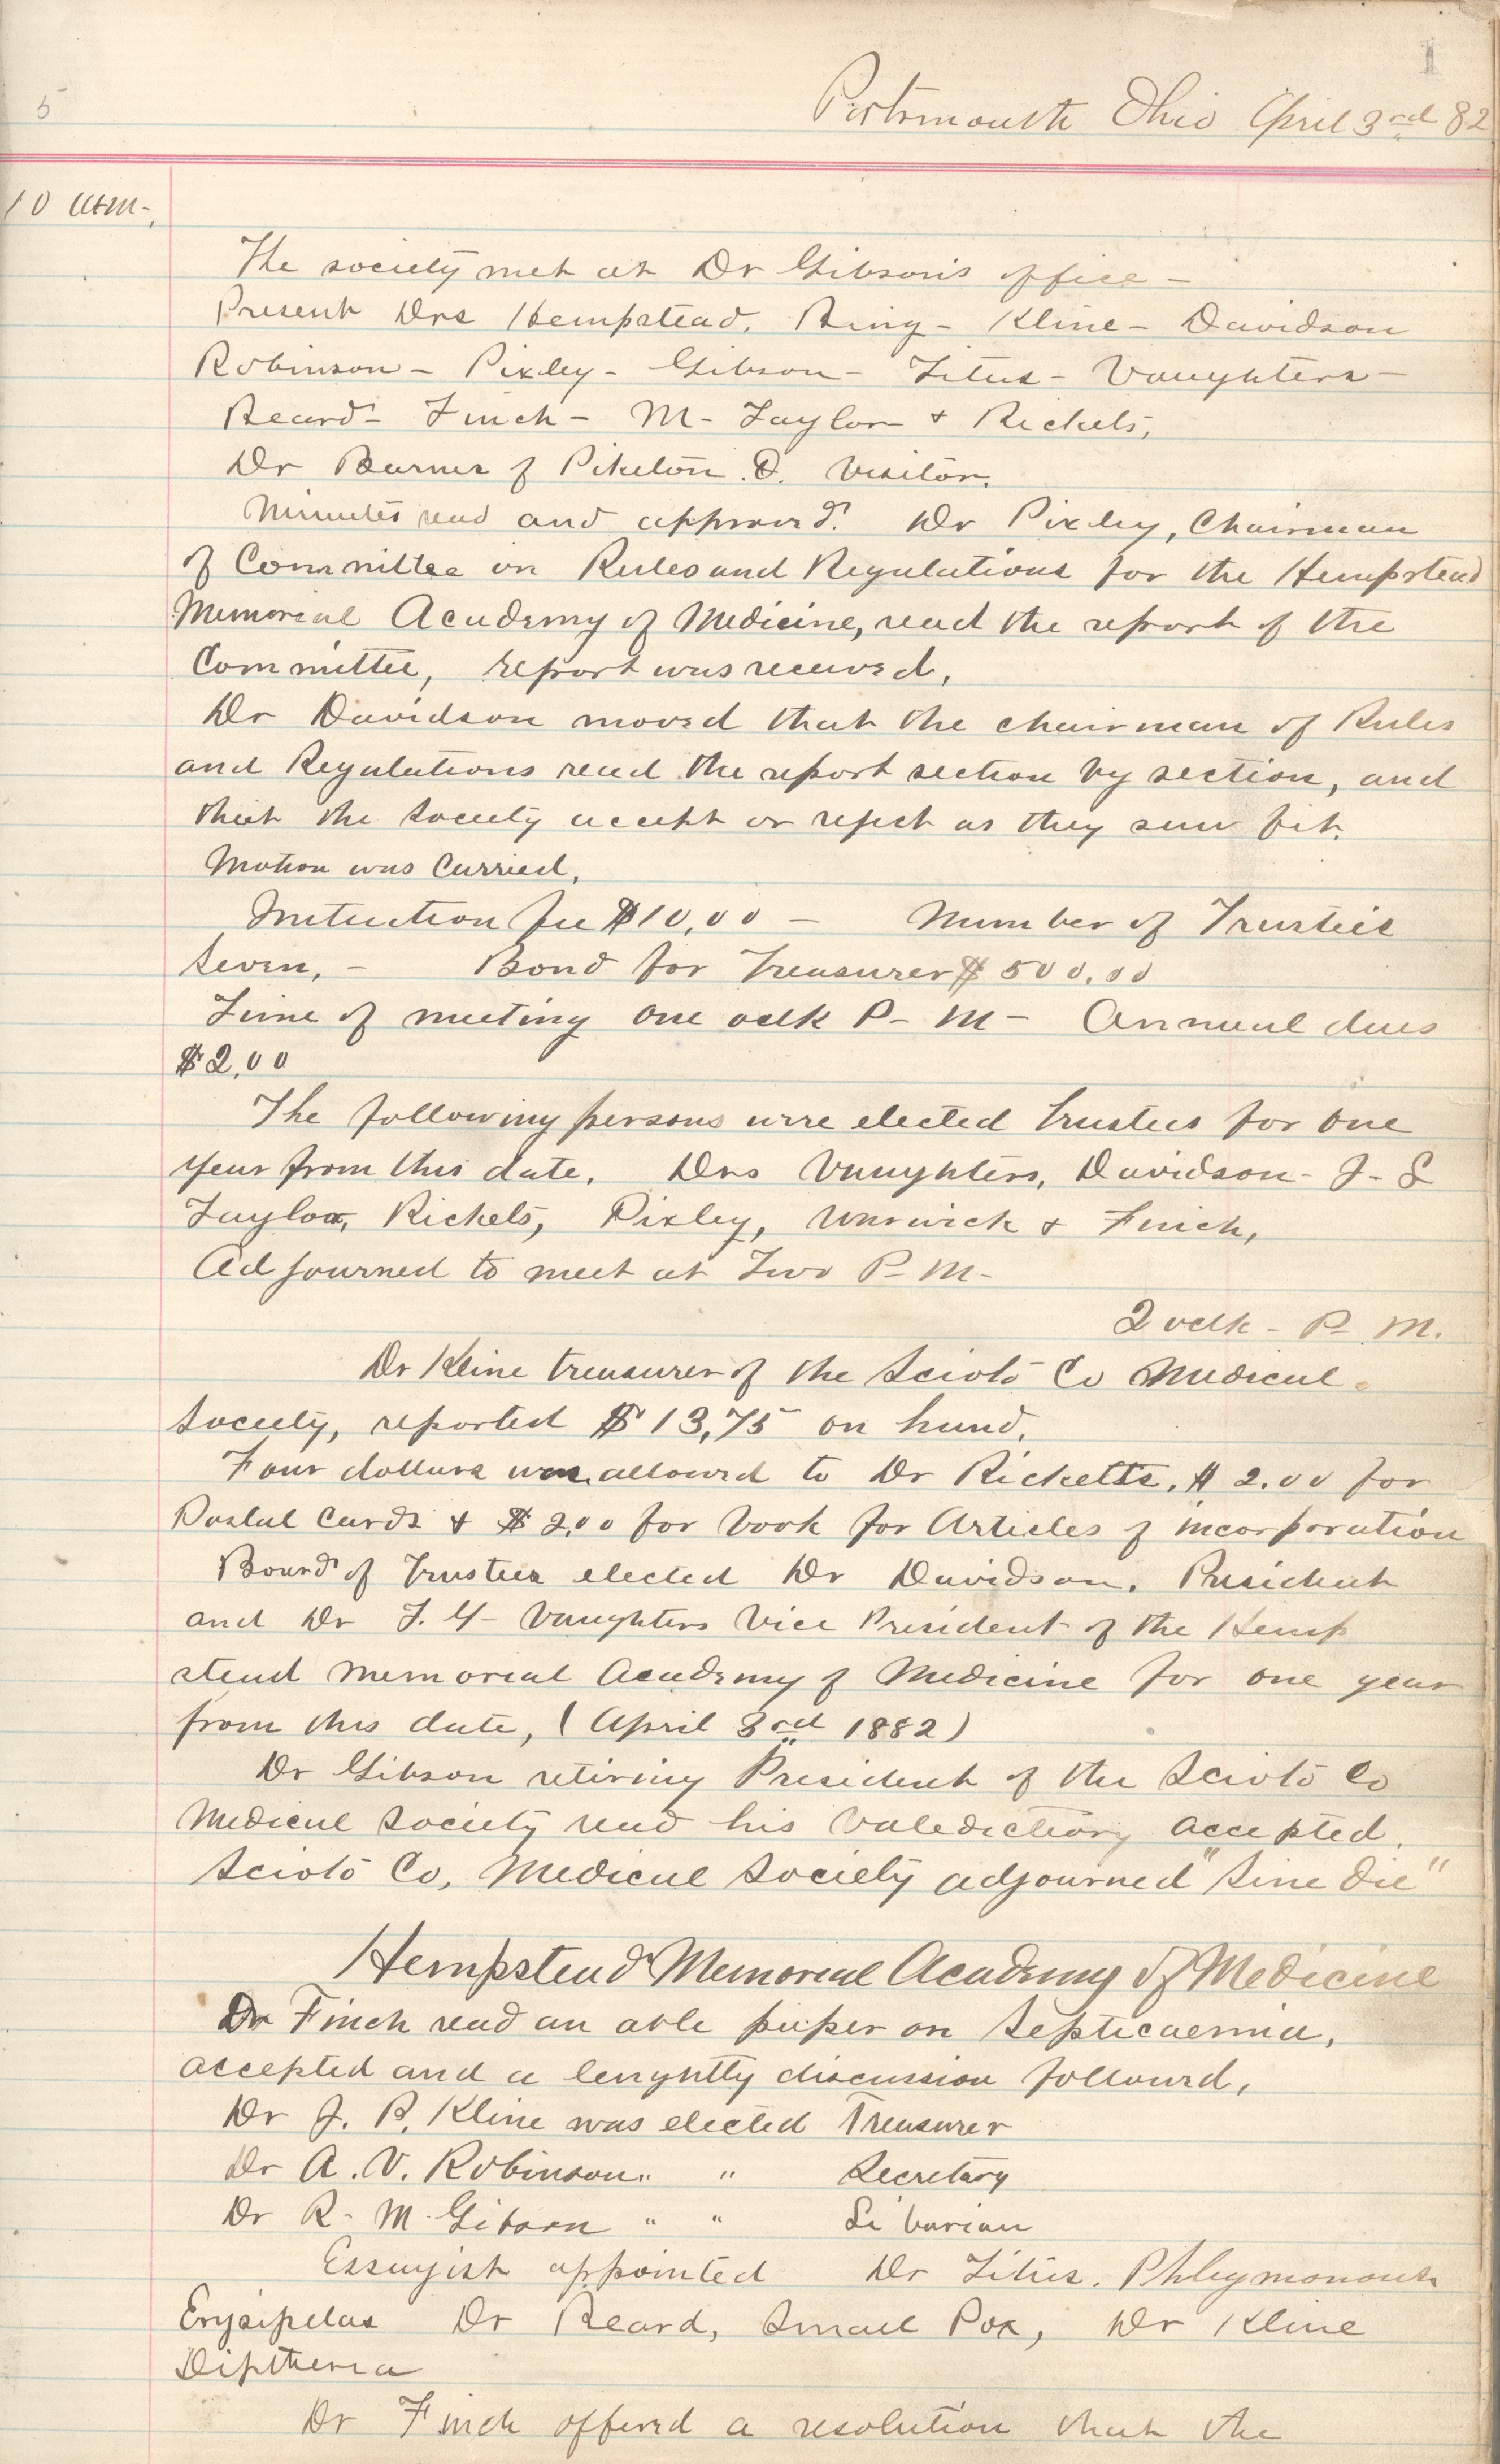 1
5
Portsmouth Ohio April 3rd 82
10 am-,
The society met at Dr Gibson's office -
Present Drs Hempstead, Bing - Kline - Davidson
Robinson - Pixley - Gibson - Titus - Vaughters -
Beard - Finch - M - Taylor + Rickets,
Dr Barnes of Piketon .O. Visitor.
Minutes read and approved. Dr Pixley, Chairman
of Committee on Rules and Regulations for the Hempstead
Memorial Academy of Medicine, read the report of the
Committee, report was received,
Dr Davidson moved that the chairman of Rules
and Regulations read the report section by section, and
that the Society accept or reject as they saw fit.
Motion was Carried,
Initiation fee $10,00 - Number of Trustees
Seven, - Bond for Treasurer $500.00
Time of meeting One oclk P- M- Annual dues
$2,00
The following persons were elected trustees for one
year from this date. Drs Vaughters, Davidson - J- S
Taylor, Rickets, Pixley, Warwick + Finch,
Adjourned to meet at Two P- M-
2 oclk - P. M.
Dr Kline treasurer of the Scioto Co Medical
Society, reported $13,75 on hand.
Four dollars was allowed to Dr Ricketts, $2.00 for
Postal Cards + $2,00 for book for Articles of incorporation
Board of Trustees elected Dr Davidson. President
and Dr T. G- Vaughters Vice President of the Hemp
stead Memorial Academy of Medicine for one year
from this date, (April 3rd 1882)
Dr Gibson retiring President of the Scioto Co
Medical Society read his Valedictory accepted.
Scioto Co, Medical Society adjourned "Sine Die"
Hempstead Memorial Academy of Medicine
Dr Finch read an able paper on Septicaemia,
accepted and a lenghtly discussion followed,
Dr J. B. Kline was elected Treasurer
Dr A. V. Robinson " " Secretary
Dr R- M- Gibson " " Librarian
Essayist appointed Dr Titus. Phlegmonous
Erysipelas Dr Beard, Small Pox, Dr Kline
Diptheria
Dr Finch offered a resolution that the